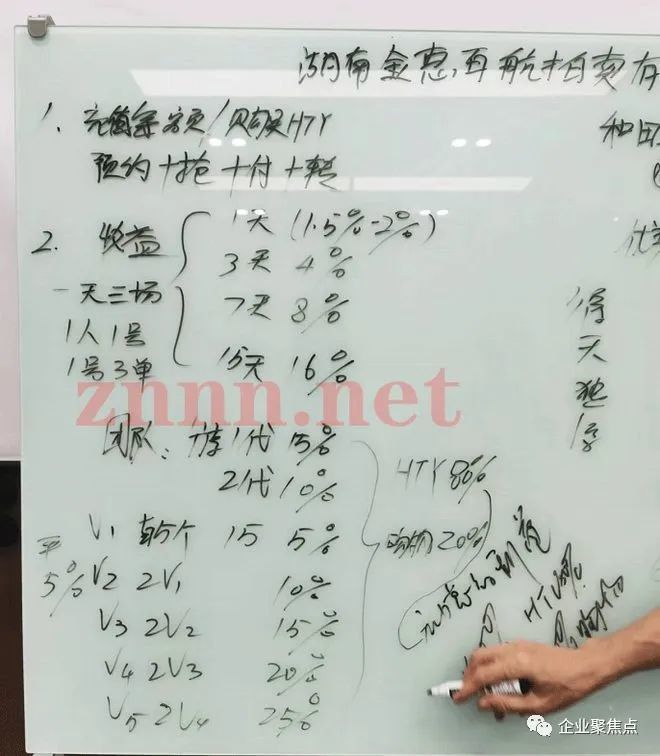 湖南金惠再航拍卖有
1. 充值金额/购买HTY
预约+抢+付+转
和田
2. 收益
1天 (1.5%-2%)
3天 4%
一天三场
7天 8%
1人1号
1号3单
15天 16%
得
天
独
厚
znnn.net
团队: 1代 15%
2代 10%
HTY 80%
购物20%
V1 直5个 15 5%
平
5%
V2 2V1 10%
V3 2V2 15%
V4 2V3 20%
V5 2V4 25%
企业聚焦点